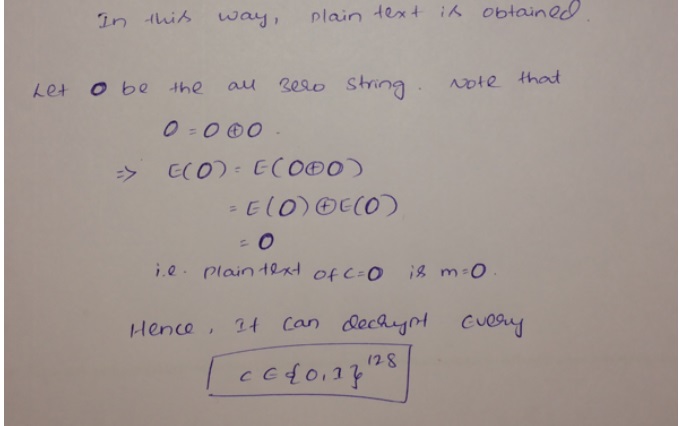 In this way, plain text is obtained.
Let 0 be the all zero string. Note that
0 = 0 ⊕ 0.
=> E(0) = E(0⊕0)
= E(0) ⊕ E(0)
= 0
i.e. plain text of c=0 is m=0.
Hence, It can decrypt every
c ∈ {0,1}^128